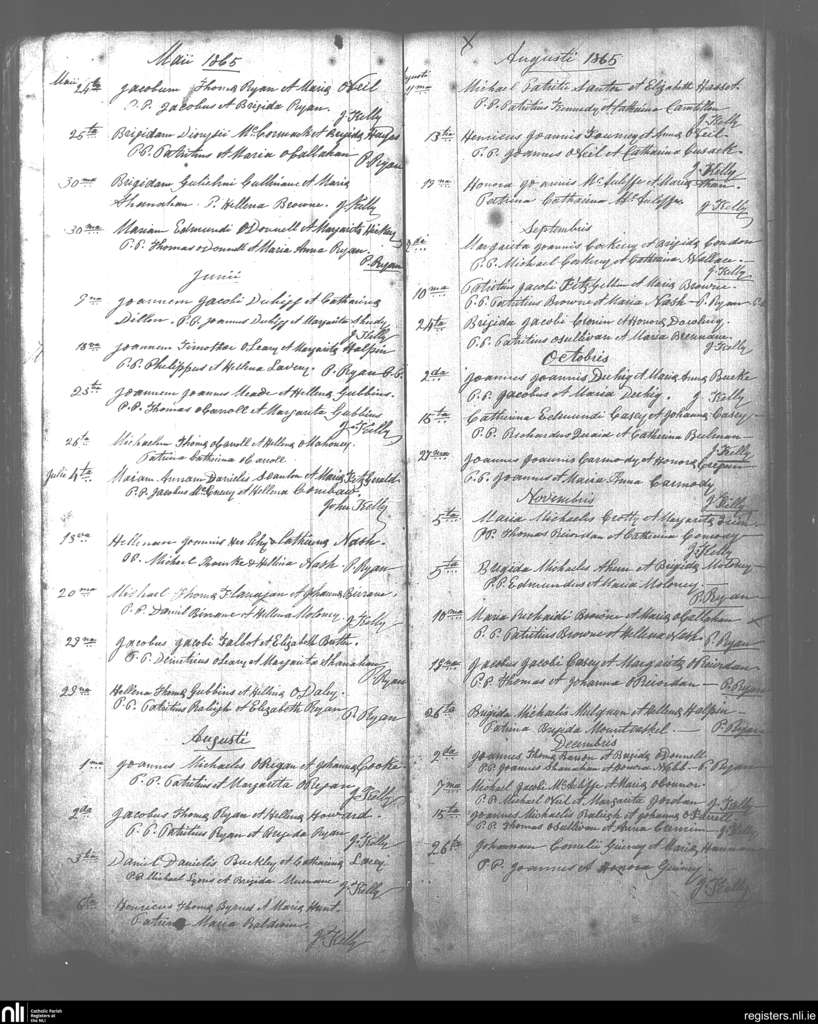 Maii 1865
Maii 24ta Jacobum Thoma Ryan et Maria ONeil
P.P. Jacobus et Brigida Ryan.
J. Kelly
25ta Brigidam Dionysii McCormack et Brigida Hayes
P.P. Patritius et Maria OCallahan P. Ryan
30ma Brigidam Gulielmi Cullinane et Maria
Shanahan P. Hellena Browne. J. Kelly
30ma Mariam Edmundi ODonnell et Margarita Hickey
P.P. Thomas ODonnell et Maria Anna Ryan.
P. Ryan
Junii
Joannem Jacobi et Catharina
Dillon. P.P. Joannes et Margarita Sheedy
J. Kelly
18va Joannem Timothei OLeary et Margarita Halpin
P.P. Philippus et Hellena P. Ryan C.C.
25ta Joannem Joannis Meade et Hellena Gubbins.
P.P. Thomas OCarroll et Margarita Gubbins
J. Kelly
26ta Michaelem Thoma Carroll et Hellena OMahoney.
Patrina Catherina OCarroll
Julii 4ta Mariam Annam Danielis Scanlon et Maria FitzGerald
P.P. Jacobus et Hellena
John Kelly
18va Hellenam Joannis & Catherina Nash
PP. Michael & Hellena Nash P. Ryan
20ma Michael Thoma Flanagan et Johanna Birrane.
P.P. Daniel Birrane et Hellena Moloney.
J. Kelly
29na Jacobus Jacobi Talbot et Elizabeth Butler.
P.P. Demetrius OLeary et Margarita Shanahan
P. Ryan
29na Hellena Thoma Gubbins et Hellena ODaly.
P.P. Patritius Raligh et Elizabeth Ryan
P. Ryan
Augusti
1ma Joannes Michaelis ORegan et Johanna Cooke
P.P. Patritius et Margarita ORegan
J. Kelly
2da Jacobus Thoma Ryan et Hellena Howard.
P.P. Patritius Ryan et Brigida Ryan
J. Kelly
3tia Daniel Danielis Buckley et Catharina Lacy
P.P. Michael Lyons et Brigida
J. Kelly
6ta Henricus Thoma Byrnes et Maria Hunt.
Patrina Maria
J. Kelly
Augusti 1865
Augusti Michael Patritii et Elizabeth
P.P. Patritius Kennedy et Catherina
J. Kelly
13tia Henricus Joannis et Anna ONeil.
P.P. Joannes ONeil et Catharina Cusack.
J. Kelly
Honora Joannis McAuliffe et Maria
Patrina Catharina McAuliffe
J. Kelly
Septembris
Margarita Joannis Corkery et Brigida Condon
P.P. Michael Corkery et Catharina Wallace.
J. Kelly
10ma Patritius Jacobi et Maria Browne.
P.P. Patritius Browne et Maria Nash P. Ryan
24ta Brigida Jacobi Cronin et Honora
P.P. Patritius OSullivan et Maria Brennane.
J. Kelly
Octobris
2da Joannes Joannis Duhig et Maria Anna Burke
P.P. Jacobus et Maria Duhig. J. Kelly
15ta Catherina Edmundi Casey et Johanna Casey
P.P. Richardus Quaid et Catherina
J. Kelly
27ma Joannes Joannis Carmody et Honora
P.P. Joannes et Maria Anna Carmody
J. Kelly
Novembris
5ta Maria Michaelis Crotty et Margarita
P.P. Thomas Riordan et Catherina
J. Kelly
5ta Brigida Michaelis Ahern et Brigida Moloney
P.P. Edmundus et Maria Moloney.
P. Ryan
10ma Maria Richardi Browne et Maria OCallahan
P.P. Patritius Browne et Hellena Nash. P. Ryan
19na Jacobus Jacobi Casey et Margarita ORiordan
P.P. Thomas et Johanna ORiordan P. Ryan
26ta Brigida Michaelis Mulqueen et Hellena Halpin
Patrina Brigida P. Ryan
Decembris
2da Joannes Thoma et Brigida ODonnell
P.P. Joannes Shanahan et Honora Webb P. Ryan
7ma Michael Jacobi McAuliffe et Maria OConnor.
P.P. Michael ONeil et Margarita Jordan J. Kelly
15ta Joannes Michaelis Raligh et Johanna OFarrell
P.P. Thomas OSullivan et Anna J. Kelly
26ta Johannam Cornelii Guiney et Maria
P.P. Joannes et Honora Guiney
J. Kelly
nli
Catholic Parish
Registers at
the NLI
registers.nli.ie